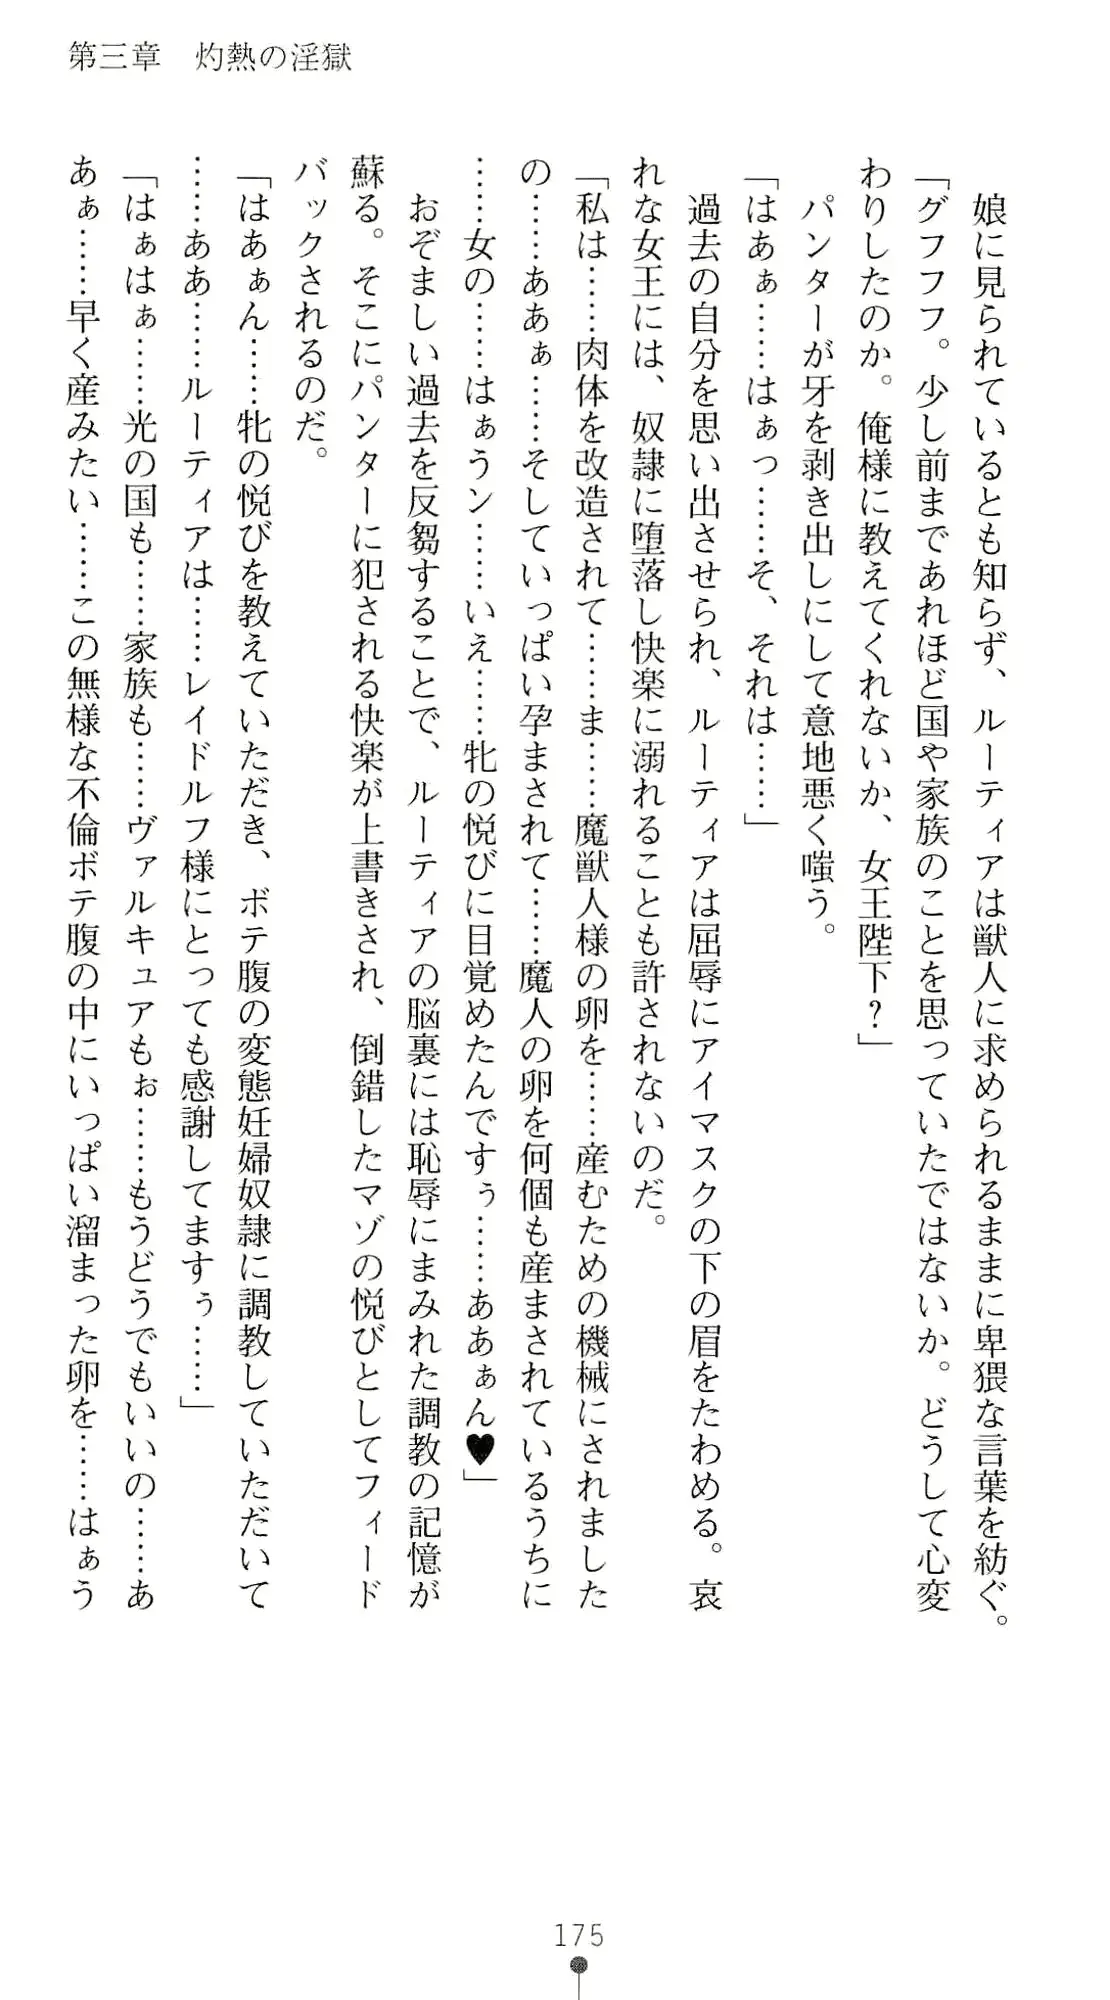 第三章　灼熱の淫獄
　娘に見られているとも知らず、ルーティアは獣人に求められるままに卑猥な言葉を紡ぐ。
「グフフフ。少し前まであれほど国や家族のことを思っていたではないか。どうして心変
わりしたのか。俺様に教えてくれないか、女王陛下？」
　パンターが牙を剥き出しにして意地悪く嗤う。
「はあぁ……はぁっ……そ、それは……」
　過去の自分を思い出させられ、ルーティアは屈辱にアイマスクの下の眉をたわめる。哀
れな女王には、奴隷に堕落し快楽に溺れることも許されないのだ。
「私は……肉体を改造されて……ま……魔獣人様の卵を……産むための機械にされました
の……ああぁ……そしていっぱい孕まされて……魔人の卵を何個も産まされているうちに
……女の……はぁうン……いえ……牝の悦びに目覚めたんですぅ……ああぁん♥」
　おぞましい過去を反芻することで、ルーティアの脳裏には恥辱にまみれた調教の記憶が
蘇る。そこにパンターに犯される快楽が上書きされ、倒錯したマゾの悦びとしてフィード
バックされるのだ。
「はあぁん……牝の悦びを教えていただき、ボテ腹の変態妊婦奴隷に調教していただいて
……ああ……ルーティアは……レイドルフ様にとっても感謝してますぅ……」
「はぁはぁ……光の国も……家族も……ヴァルキュアもぉ……もうどうでもいいの……あ
あぁ……早く産みたい……この無様な不倫ボテ腹の中にいっぱい溜まった卵を……はぁう
175